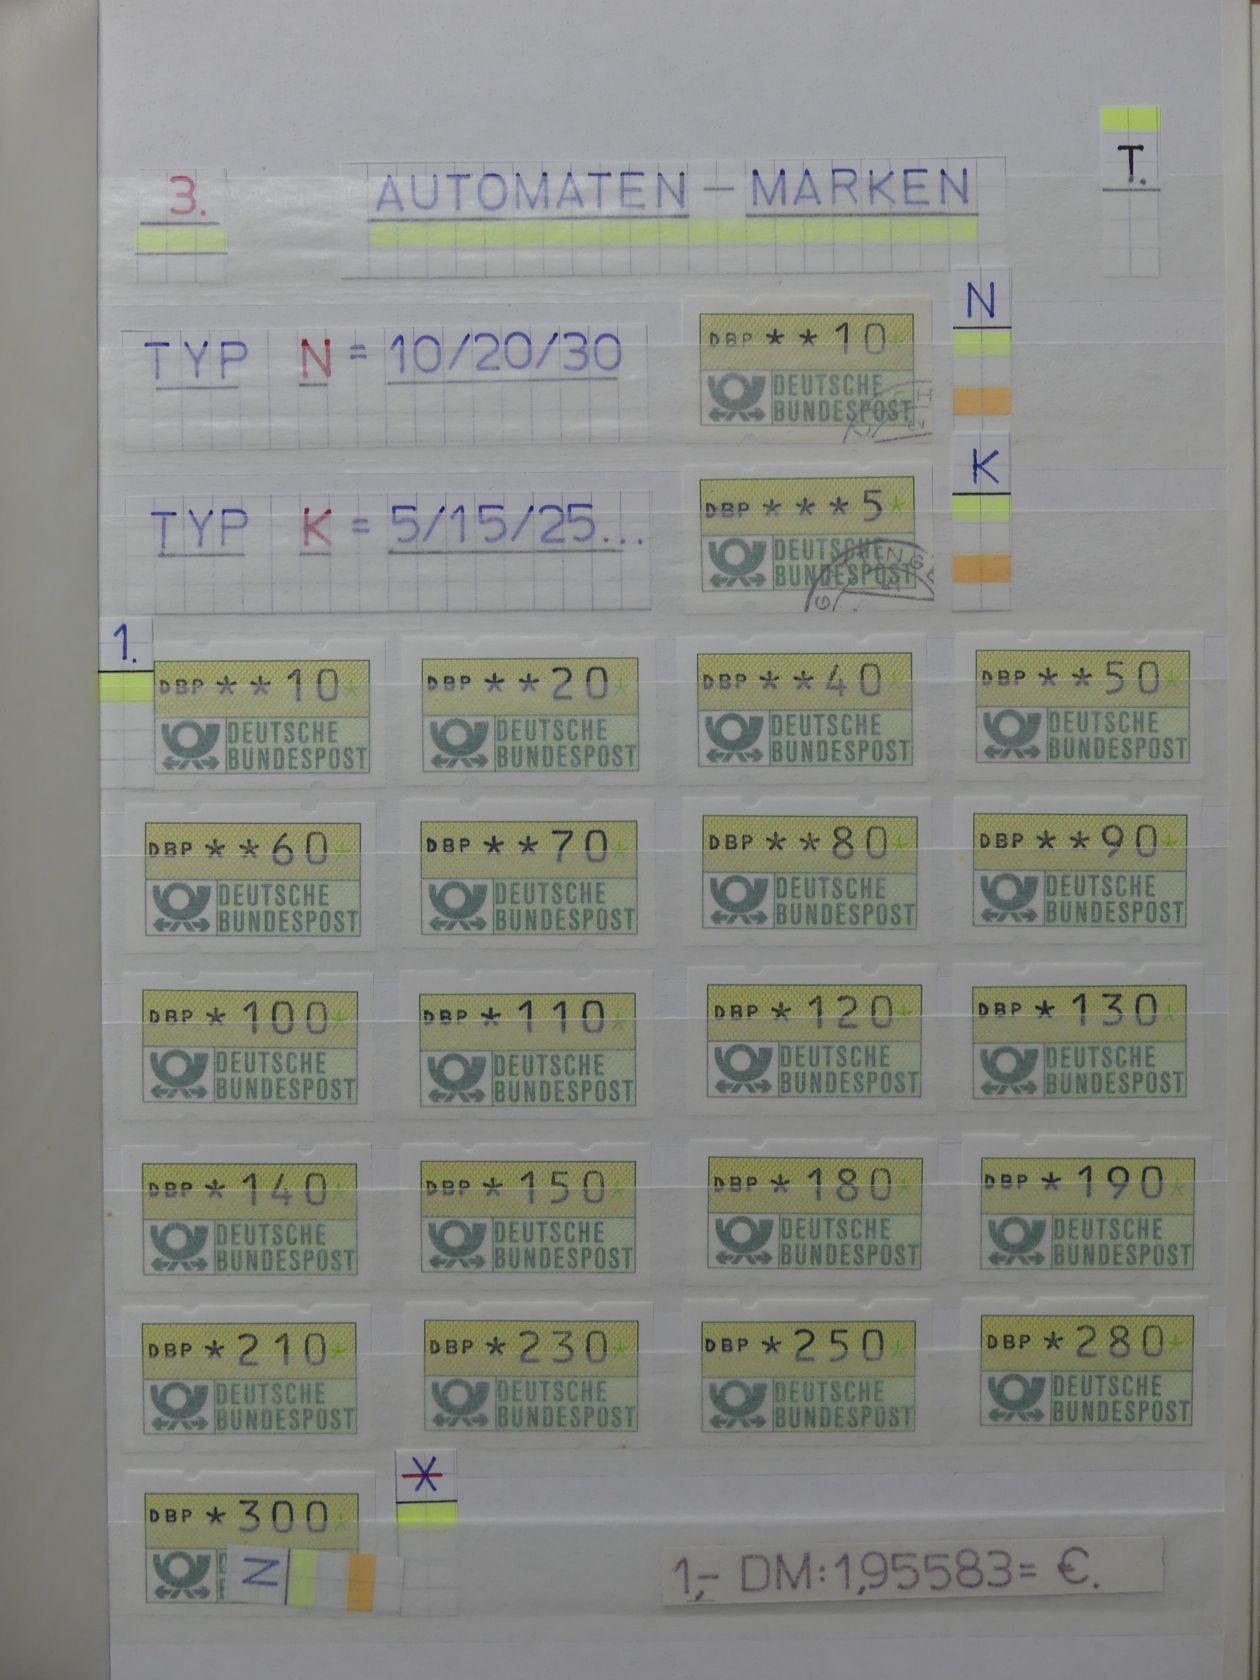 T.
3. AUTOMATEN – MARKEN
TYP N = 10/20/30
DBP **10*
DEUTSCHE
BUNDESPOST
N
TYP K = 5/15/25...
DBP ***5*
DEUTSCHE
BUNDESPOST
K
1.
DBP **10* DBP **20* DBP **40* DBP **50*
DEUTSCHE DEUTSCHE DEUTSCHE DEUTSCHE
BUNDESPOST BUNDESPOST BUNDESPOST BUNDESPOST
DBP **60* DBP **70* DBP **80* DBP **90*
DEUTSCHE DEUTSCHE DEUTSCHE DEUTSCHE
BUNDESPOST BUNDESPOST BUNDESPOST BUNDESPOST
DBP *100* DBP *110* DBP *120* DBP *130*
DEUTSCHE DEUTSCHE DEUTSCHE DEUTSCHE
BUNDESPOST BUNDESPOST BUNDESPOST BUNDESPOST
DBP *140* DBP *150* DBP *180* DBP *190*
DEUTSCHE DEUTSCHE DEUTSCHE DEUTSCHE
BUNDESPOST BUNDESPOST BUNDESPOST BUNDESPOST
DBP *210* DBP *230* DBP *250* DBP *280*
DEUTSCHE DEUTSCHE DEUTSCHE DEUTSCHE
BUNDESPOST BUNDESPOST BUNDESPOST BUNDESPOST
*
DBP *300*
N
1,– DM:1,95583= €.